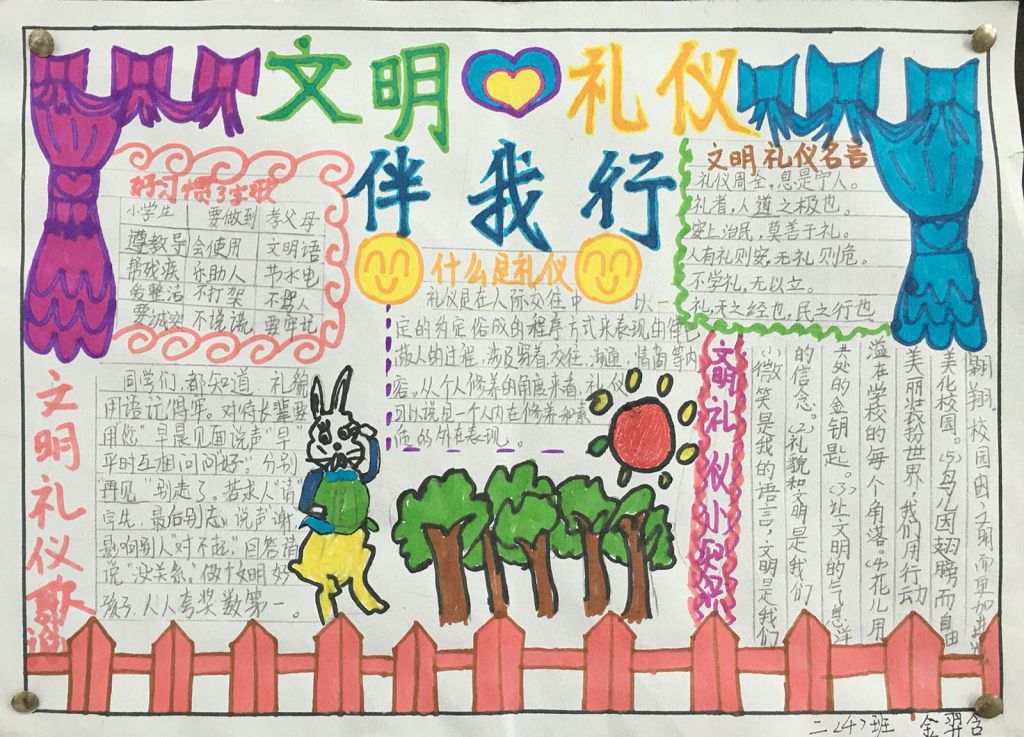 文明 礼仪
伴我行
好习惯
小学生 要做到 孝父母
遵教导 会使用 文明语
帮残疾 乐助人 节水电
爱整洁 不打架 不骂人
要诚实 不说谎 要牢记
什么是礼仪
礼仪是在人际交往中 以一
定的约定俗成的程序方式来表现的律己
敬人的过程,涉及穿着、交往、沟通、情商等内
容。从个人修养的角度来看,礼仪
可以说是一个人内在修养和素
质的外在表现。
文明礼仪名言
礼仪周全,息是宁人。
礼者,人道之极也。
安上治民,莫善于礼。
人有礼则安,无礼则危。
不学礼,无以立。
礼,天之经也,民之行也
文明礼仪歌谣
同学们,都知道,礼貌
用语记得牢。对待长辈要
用"您",早晨见面说声"早"
平时互相问问"好",分别
"再见"别走了。若求人"请"
字先,最后别忘,说声"谢"
影响别人"对不起",回答请
说"没关系"。做个文明好
孩子,人人夸奖数第一。
文明礼仪小知识
(1)微笑是我的语言,文明是我们
的信念。(2)礼貌和文明是我们
共处的金钥匙。(3)让文明的气息洋
溢在学校的每一个角落。(4)花儿用
美丽装扮世界,我们用行动
美化校园。(5)鸟儿因翅膀而自由
翱翔,校园因文明而更加
二(4)班 金羿含